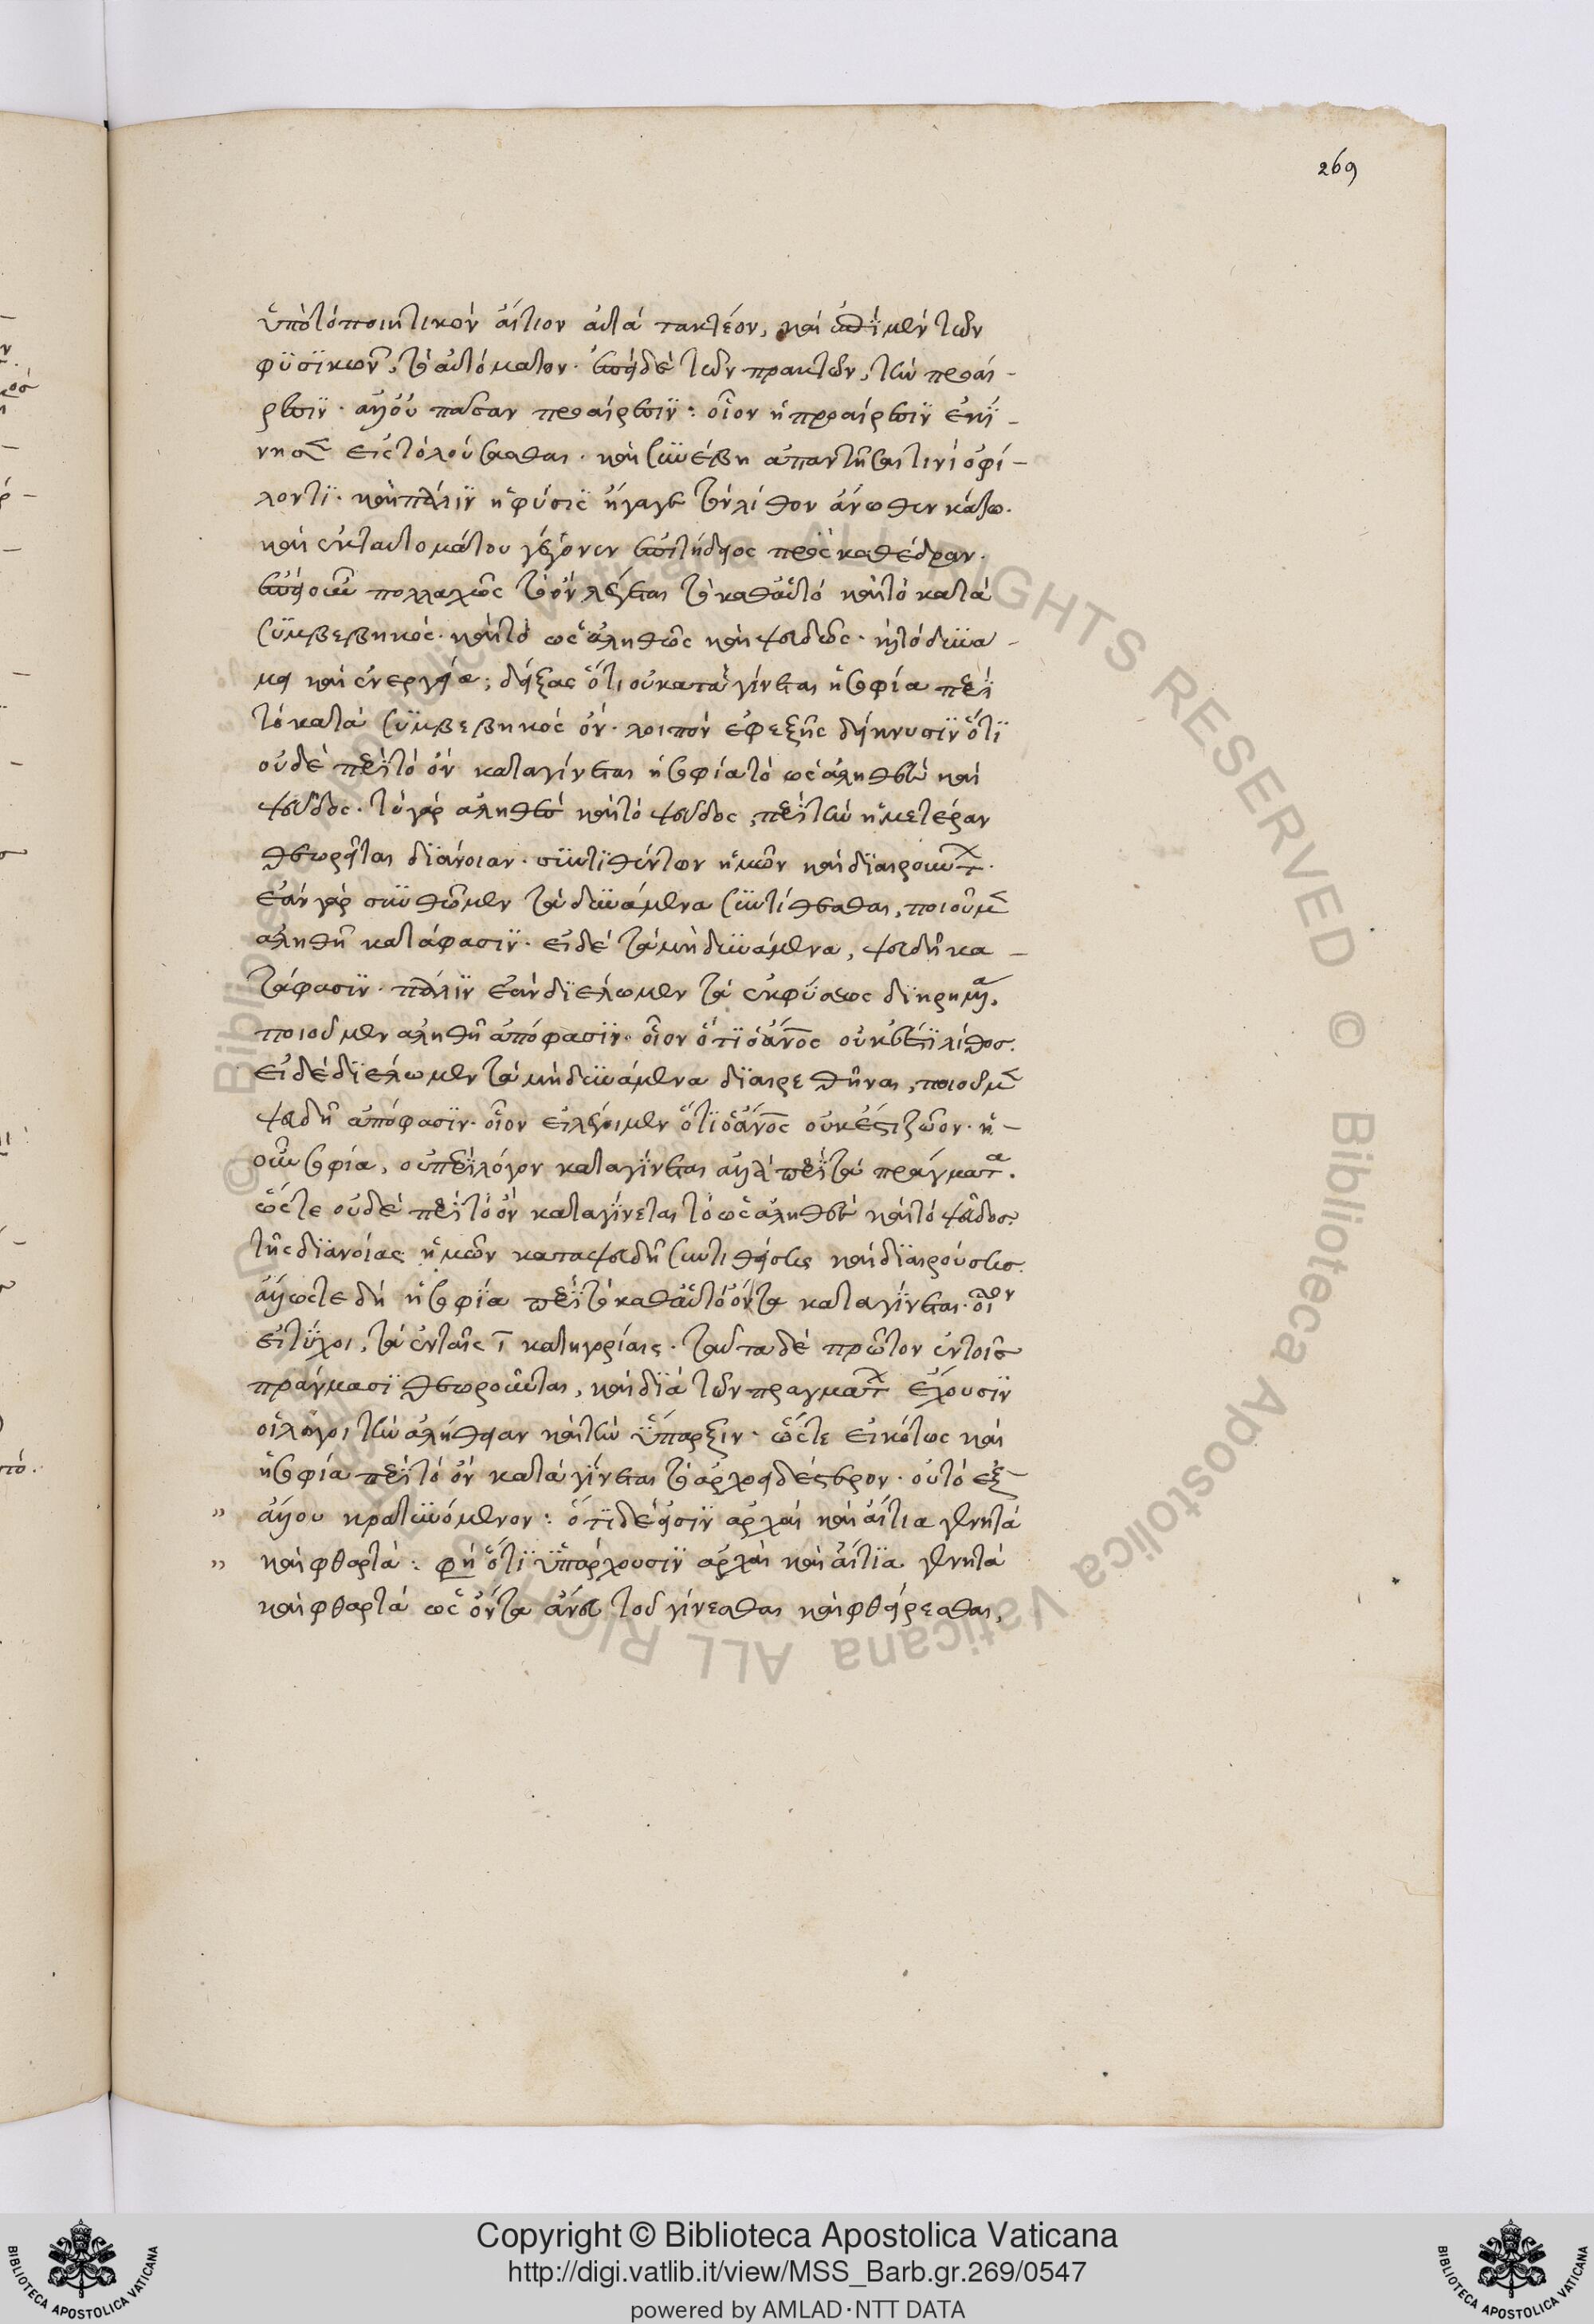 269
ὑπὸ τὸ ποιητικὸν αἴτιον αὐτὰ τακτέον, καὶ ἐπὶ μὲν τῶν
φυσικῶν, τὸ αὐτόματον· ἐπεὶ δὲ τῶν πρακτῶν, τὴν προαί-
ρεσιν· ἀλλ' οὐ πᾶσαν προαίρεσιν: οἷον ἡ προαίρεσιν ἐκί-
νησεν εἰς τὸ λούσασθαι· καὶ συνέβη ἀπαντῆσαι τινὶ ὀφί-
λοντι· καὶ πάλιν ἡ φύσις ἤγαγε τὸν λίθον ἄνωθεν κάτω·
καὶ ἐκ ταυτομάτου γέγονεν ἐπιτήδειος πρὸς καθέδραν.
ἐπεὶ οὖν πολλαχῶς τὸ ὂν λέγεται τὸ καθ' αὑτὸ καὶ τὸ κατὰ
συμβεβηκός· καὶ τὸ ὡς ἀληθῶς καὶ ψευδῶς· καὶ τὸ δυνά-
μει καὶ ἐνεργεία; δείξας ὅτι οὐ καταγίνεται ἡ σοφία περὶ
τὸ κατὰ συμβεβηκὸς ὄν· λοιπὸν ἐφεξῆς δείκνυσιν ὅτι
οὐδὲ περὶ τὸ ὂν καταγίνεται ἡ σοφία τὸ ὡς ἀληθὲς καὶ
ψεῦδος· τὸ γὰρ ἀληθὲς καὶ τὸ ψεῦδος, περὶ τὴν ἡμετέραν
θεωρεῖται διάνοιαν· συντιθέντων ἡμῶν καὶ διαιρούντων·
ἐὰν γὰρ συνθῶμεν τὰ δυνάμενα συντίθεσθαι, ποιοῦμεν
ἀληθῆ κατάφασιν· εἰ δὲ τὰ μὴ δυνάμενα, ψευδῆ κα-
τάφασιν· πάλιν ἐὰν διέλωμεν τὰ ἐκ φύσεως διῃρημένα,
ποιοῦμεν ἀληθῆ ἀπόφασιν· οἷον ὅτι ὁ ἄνος οὐκ ἔστι λίθος.
εἰ δὲ διέλωμεν τὰ μὴ δυνάμενα διαιρεθῆναι, ποιοῦμεν
ψευδῆ ἀπόφασιν· οἷον εἰ λέγοιμεν ὅτι ὁ ἄνος οὐκ ἔστι ζῶον· ἡ-
οὖν σοφία, οὐ περὶ λόγον καταγίνεται ἀλλὰ περὶ τὰ πράγματα.
ὥστε οὐδὲ περὶ τὸ ὂν καταγίνεται τὸ ὡς ἀληθὲς καὶ τὸ ψεῦδος
τῆς διανοίας ἡμῶν καταψευδῆ συντιθείσης καὶ διαιρούσης.
ἄλλως τε δὴ ἡ σοφία περὶ τὸ καθ' αὑτὸ ὄντα καταγίνεται· οἷον
εἰ τύχοι, τὰ ἐν ταῖς ι κατηγορίαις· ταῦτα δὲ πρῶτον ἐν τοῖς
πράγμασι θεωροῦνται, καὶ διὰ τῶν πραγμάτων ἔχουσιν
οἱ λόγοι τὴν ἀλήθειαν καὶ τὴν ὕπαρξιν· ὥστε εἰκότως καὶ
ἡ σοφία περὶ τὸ ὂν καταγίνεται τὸ ἀρχοειδέστερον· οὐ τὸ ἐξ
ἄλλου κρατυνόμενον: ὅτι δέ εἰσιν ἀρχαὶ καὶ αἴτια γενητὰ
καὶ φθαρτά: φη ὅτι ὑπάρχουσιν ἀρχαὶ καὶ αἴτια γενητὰ
καὶ φθαρτὰ ὡς ὄντα ἄνευ τοῦ γίνεσθαι καὶ φθείρεσθαι,
Copyright © Biblioteca Apostolica Vaticana
http://digi.vatlib.it/view/MSS_Barb.gr.269/0547
powered by AMLAD·NTT DATA